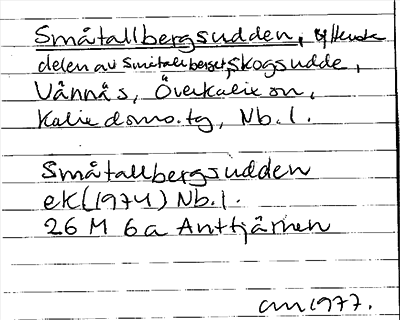 Småtallbergsudden,
delen av Småtallberget, Skogsudde,
Vännäs, Överkalix sn,
Kalix doms.tg, Nb.l.
Småtallbergsudden
ek (1974) Nb.l.
26 M 6a Anttjärnen
am 1977.